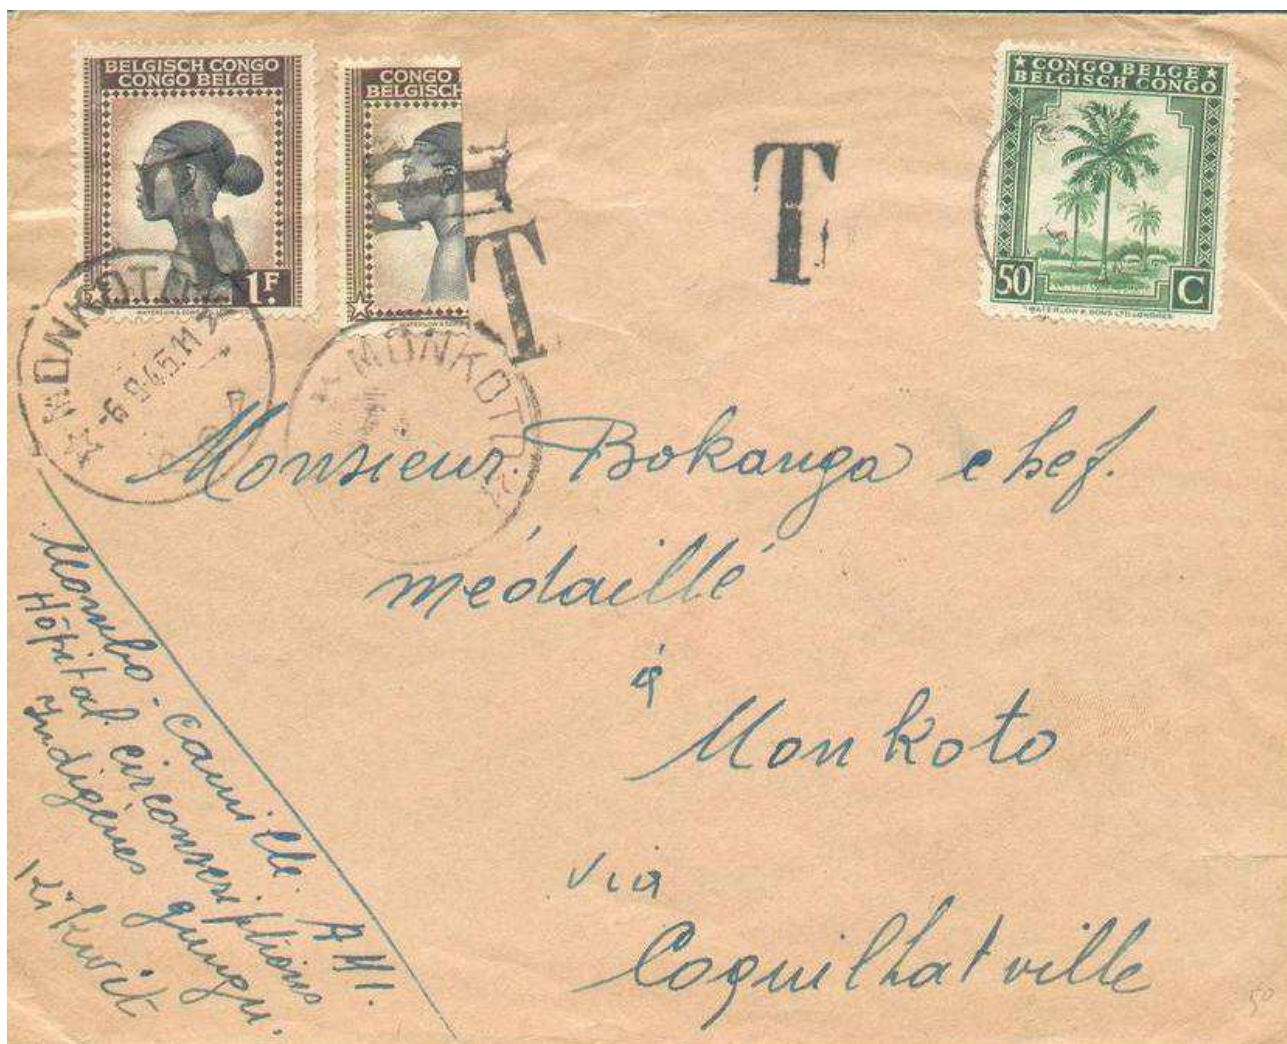 BELGISCH CONGO
CONGO BELGE
1F.
WATERLOW & SONS
CONGO
BELGISCH
WATERLOW & SONS
T
T
★ CONGO BELGE ★
BELGISCH CONGO
50 C
WATERLOW & SONS LTD. LONDRES
MONKOTO
-6.9.45.11
MONKOTO
Monsieur. Bokanga chef.
médaillé
à
Monkoto
via
Coquilhatville
Mombo - Camille. AM.
Hôpital circonscriptions
Indigènes gungu.
Kikwit
50